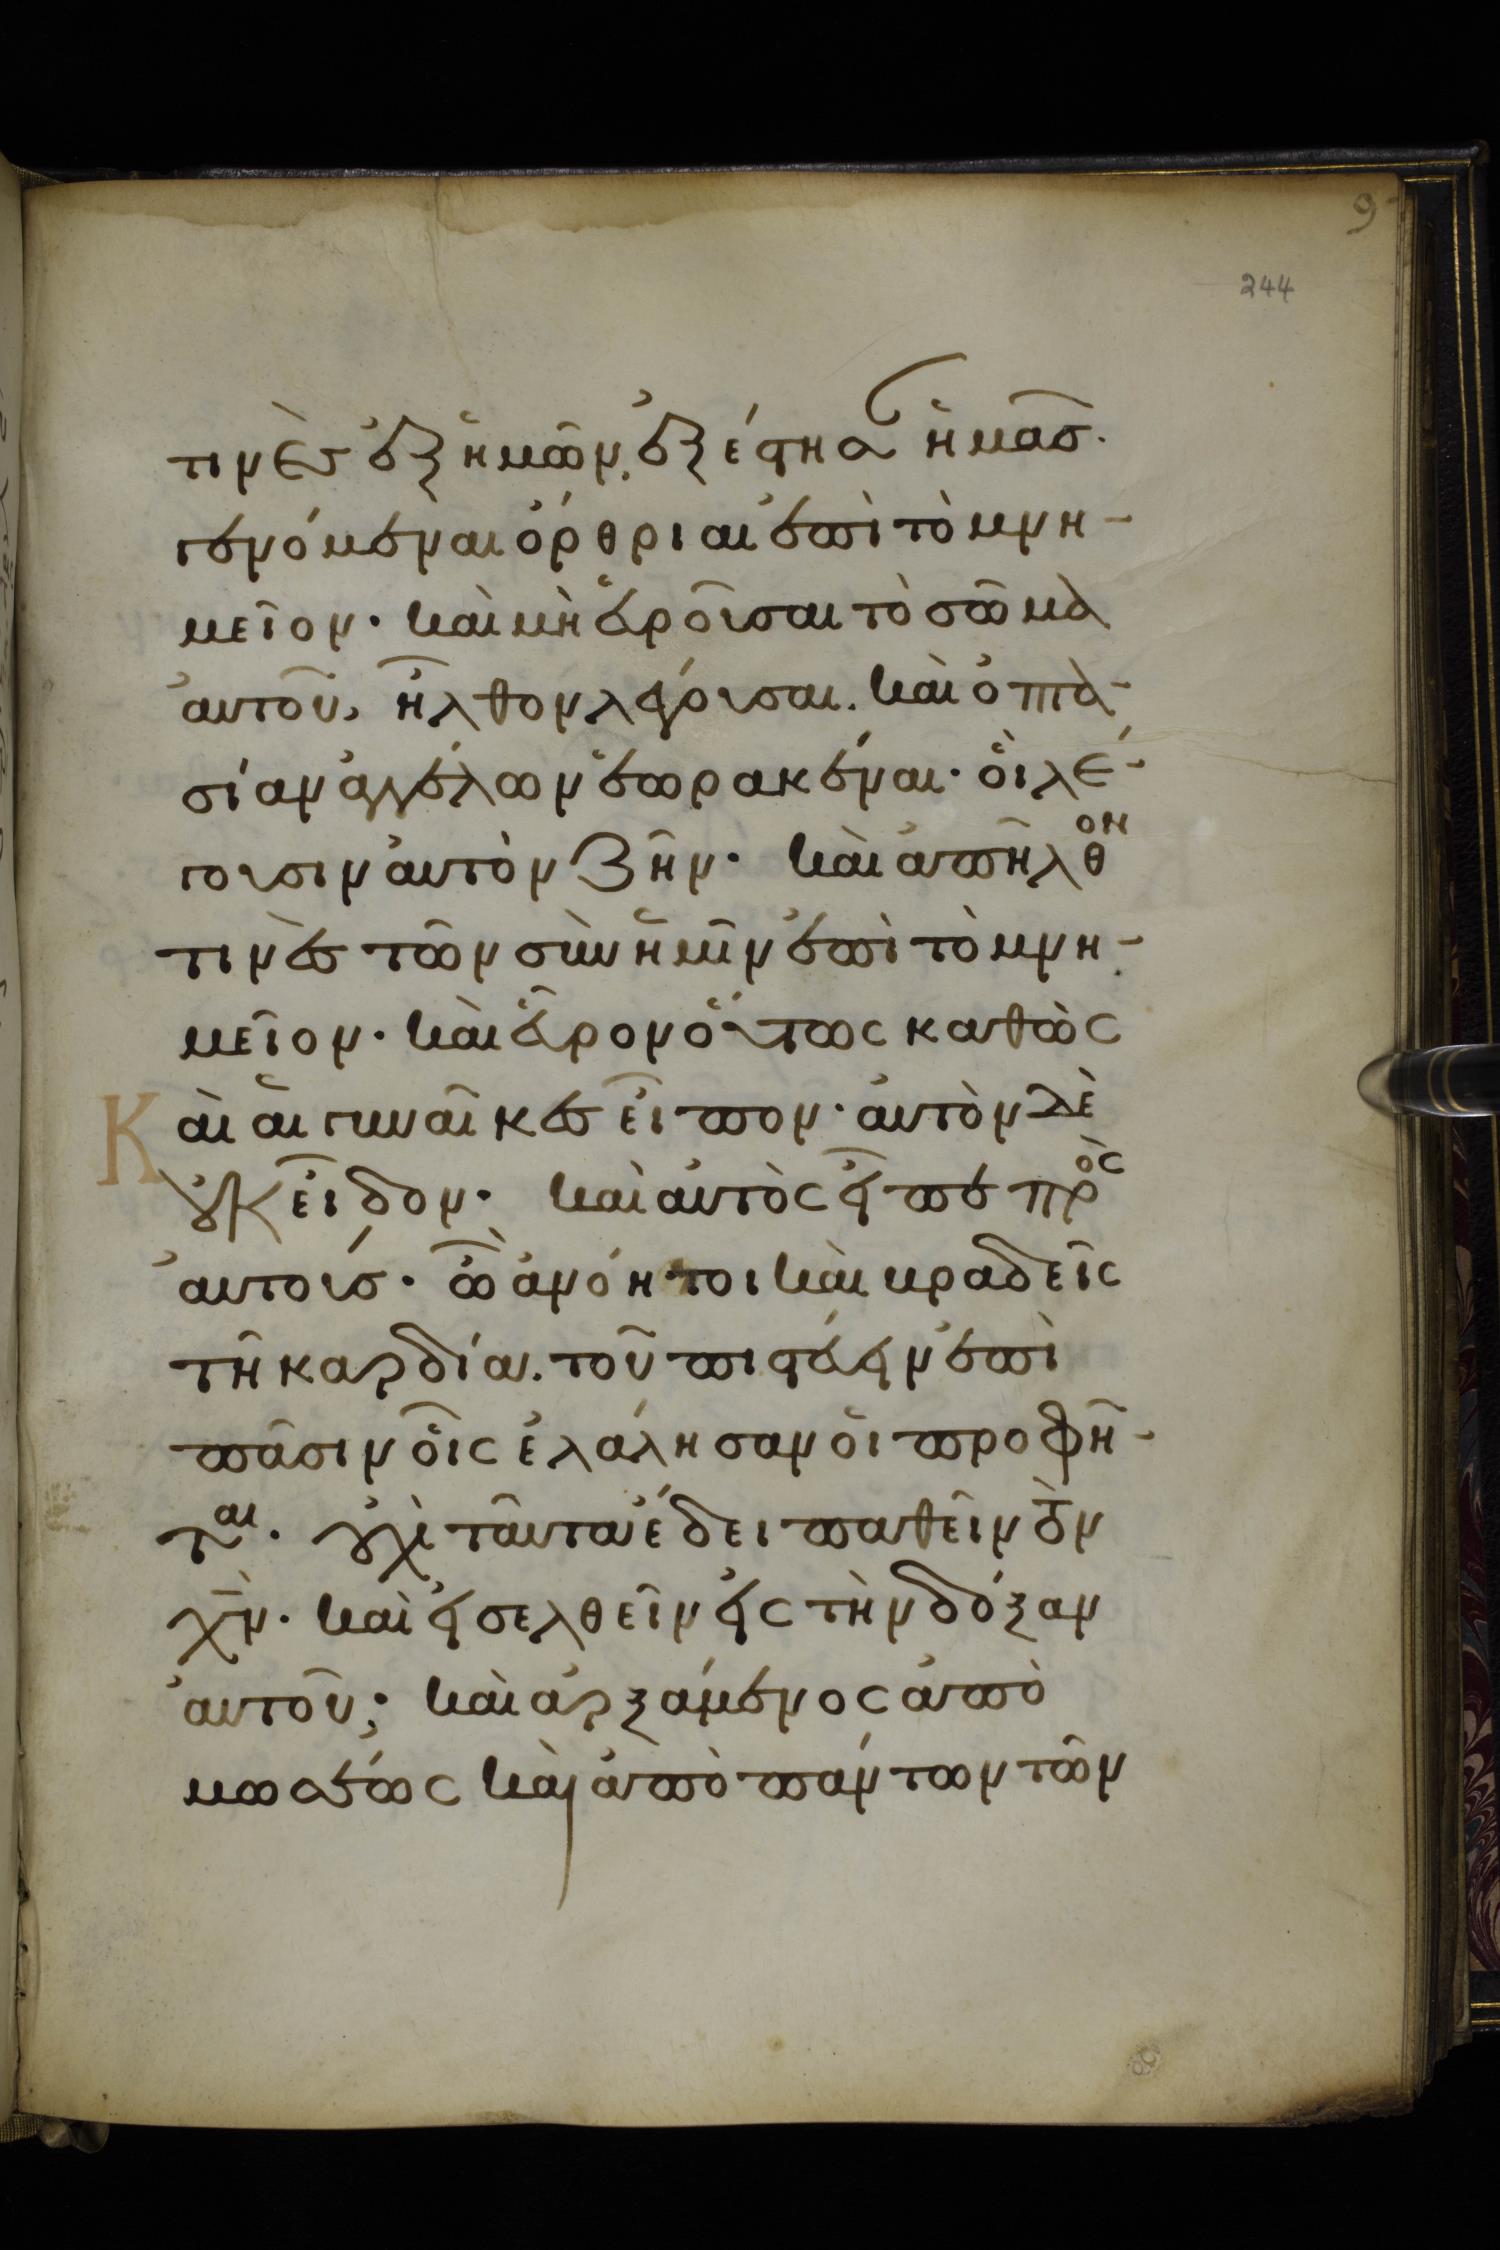 9
244
τινὲς ἐξ ἡμῶν, ἐξέστησαν ἡμᾶς·
γενόμεναι ὄρθριαι ἐπὶ τὸ μνη-
μεῖον· καὶ μὴ εὑροῦσαι τὸ σῶμα
αὐτοῦ, ἦλθον λέγουσαι. καὶ ὀπτα-
σίαν ἀγγέλων ἑωρακέναι· οἳ λέ-
γουσιν αὐτὸν ζῆν· καὶ ἀπῆλθον
τινὲς τῶν σὺν ἡμῖν ἐπὶ τὸ μνη-
μεῖον· καὶ εὗρον οὕτως καθὼς
Καὶ αἱ γυναῖκες εἶπον· αὐτὸν δὲ
οὐκ εἶδον· καὶ αὐτὸς εἶπε πρὸς
αὐτούς· ὦ ἀνόητοι καὶ βραδεῖς
τῆ καρδία. τοῦ πιστεύειν ἐπὶ
πᾶσιν οἷς ἐλάλησαν οἱ προφῆ-
ται. οὐχὶ ταῦτα ἔδει παθεῖν τὸν
χ̅ν̅. καὶ εἰσελθεῖν εἰς τὴν δόξαν
αὐτοῦ; καὶ ἀρξάμενος ἀπὸ
μωσέως καὶ ἀπὸ πάντων τῶν